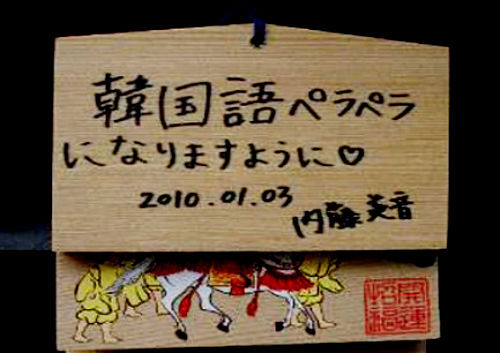 韓国語ペラペラ
になりますように♡
2010.01.03
内藤美音
開運
招福